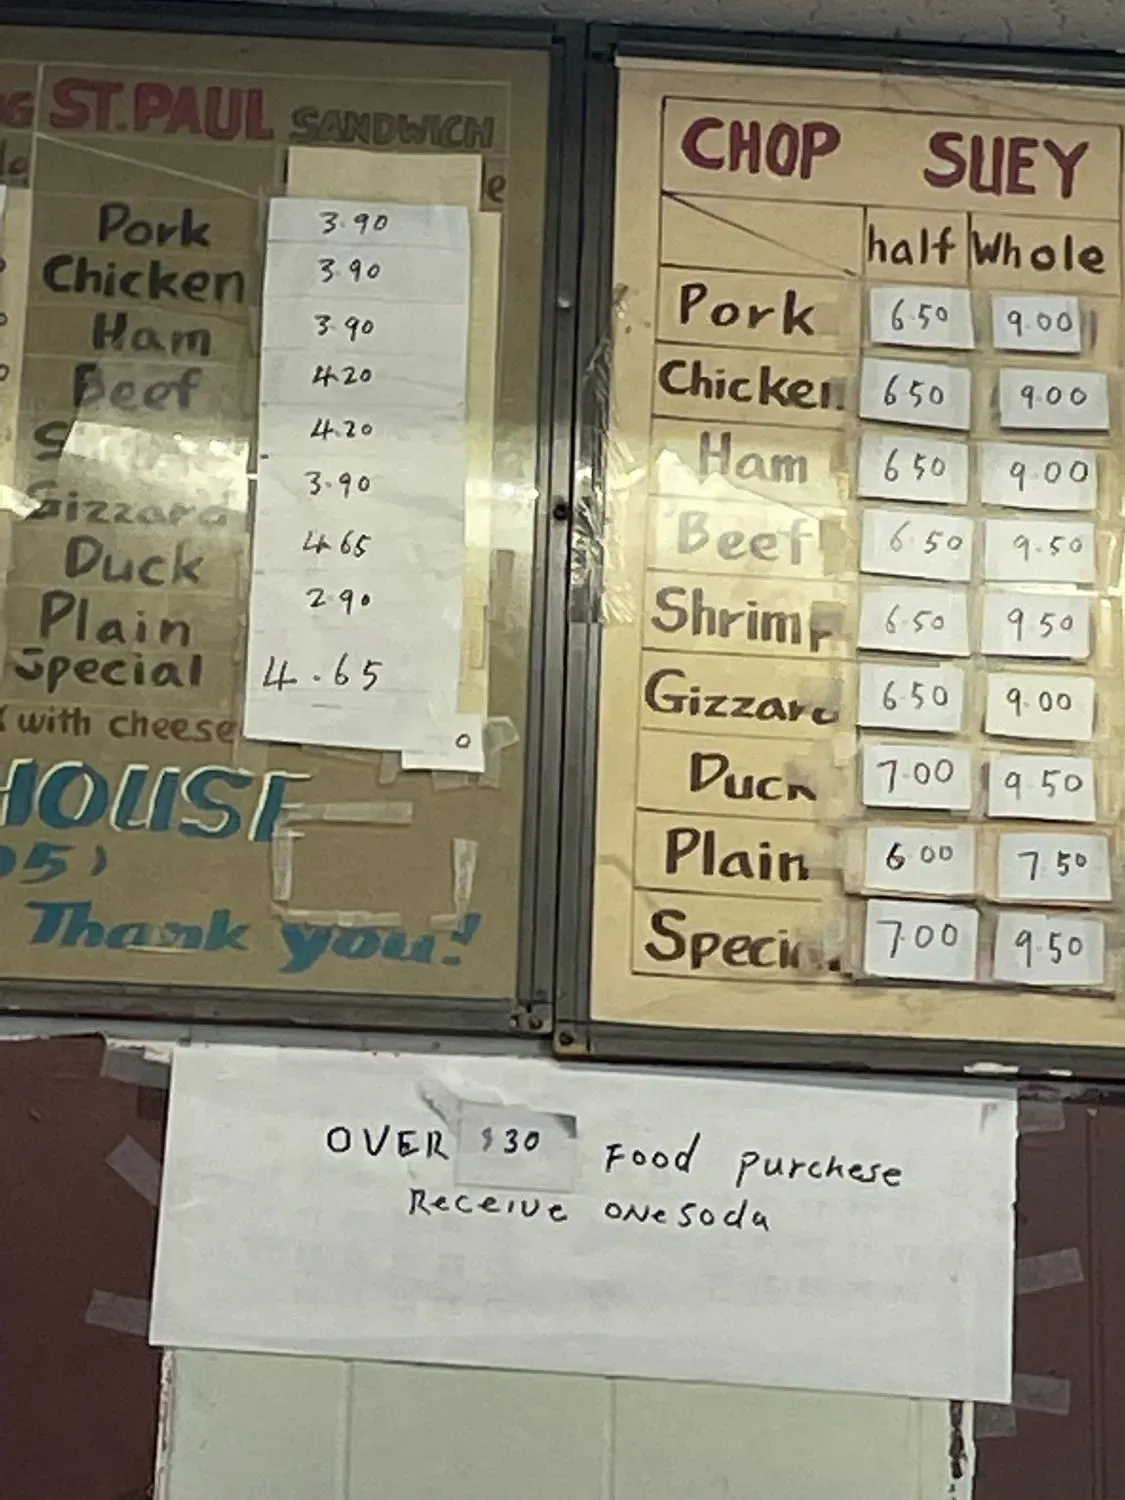 ST. PAUL SANDWICH
Pork 3.90
Chicken 3.90
Ham 3.90
Beef 4.20
4.20
Gizzard 3.90
Duck 4.65
Plain 2.90
Special 4.65
with cheese 0
HOUSE
05)
Thank you!
CHOP SUEY
half Whole
Pork 6.50 9.00
Chicken 6.50 9.00
Ham 6.50 9.00
Beef 6.50 9.50
Shrimp 6.50 9.50
Gizzard 6.50 9.00
Duck 7.00 9.50
Plain 6.00 7.50
Special 7.00 9.50
OVER $30 Food purchese
Receive one soda